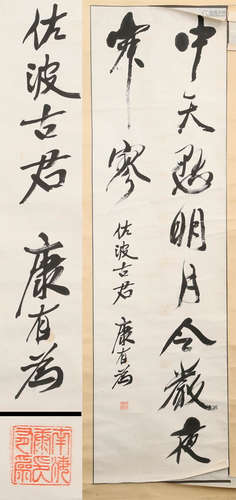 中天懸明月令嚴夜
寂寥
佐波古君 康有為
佐波古君 康有為